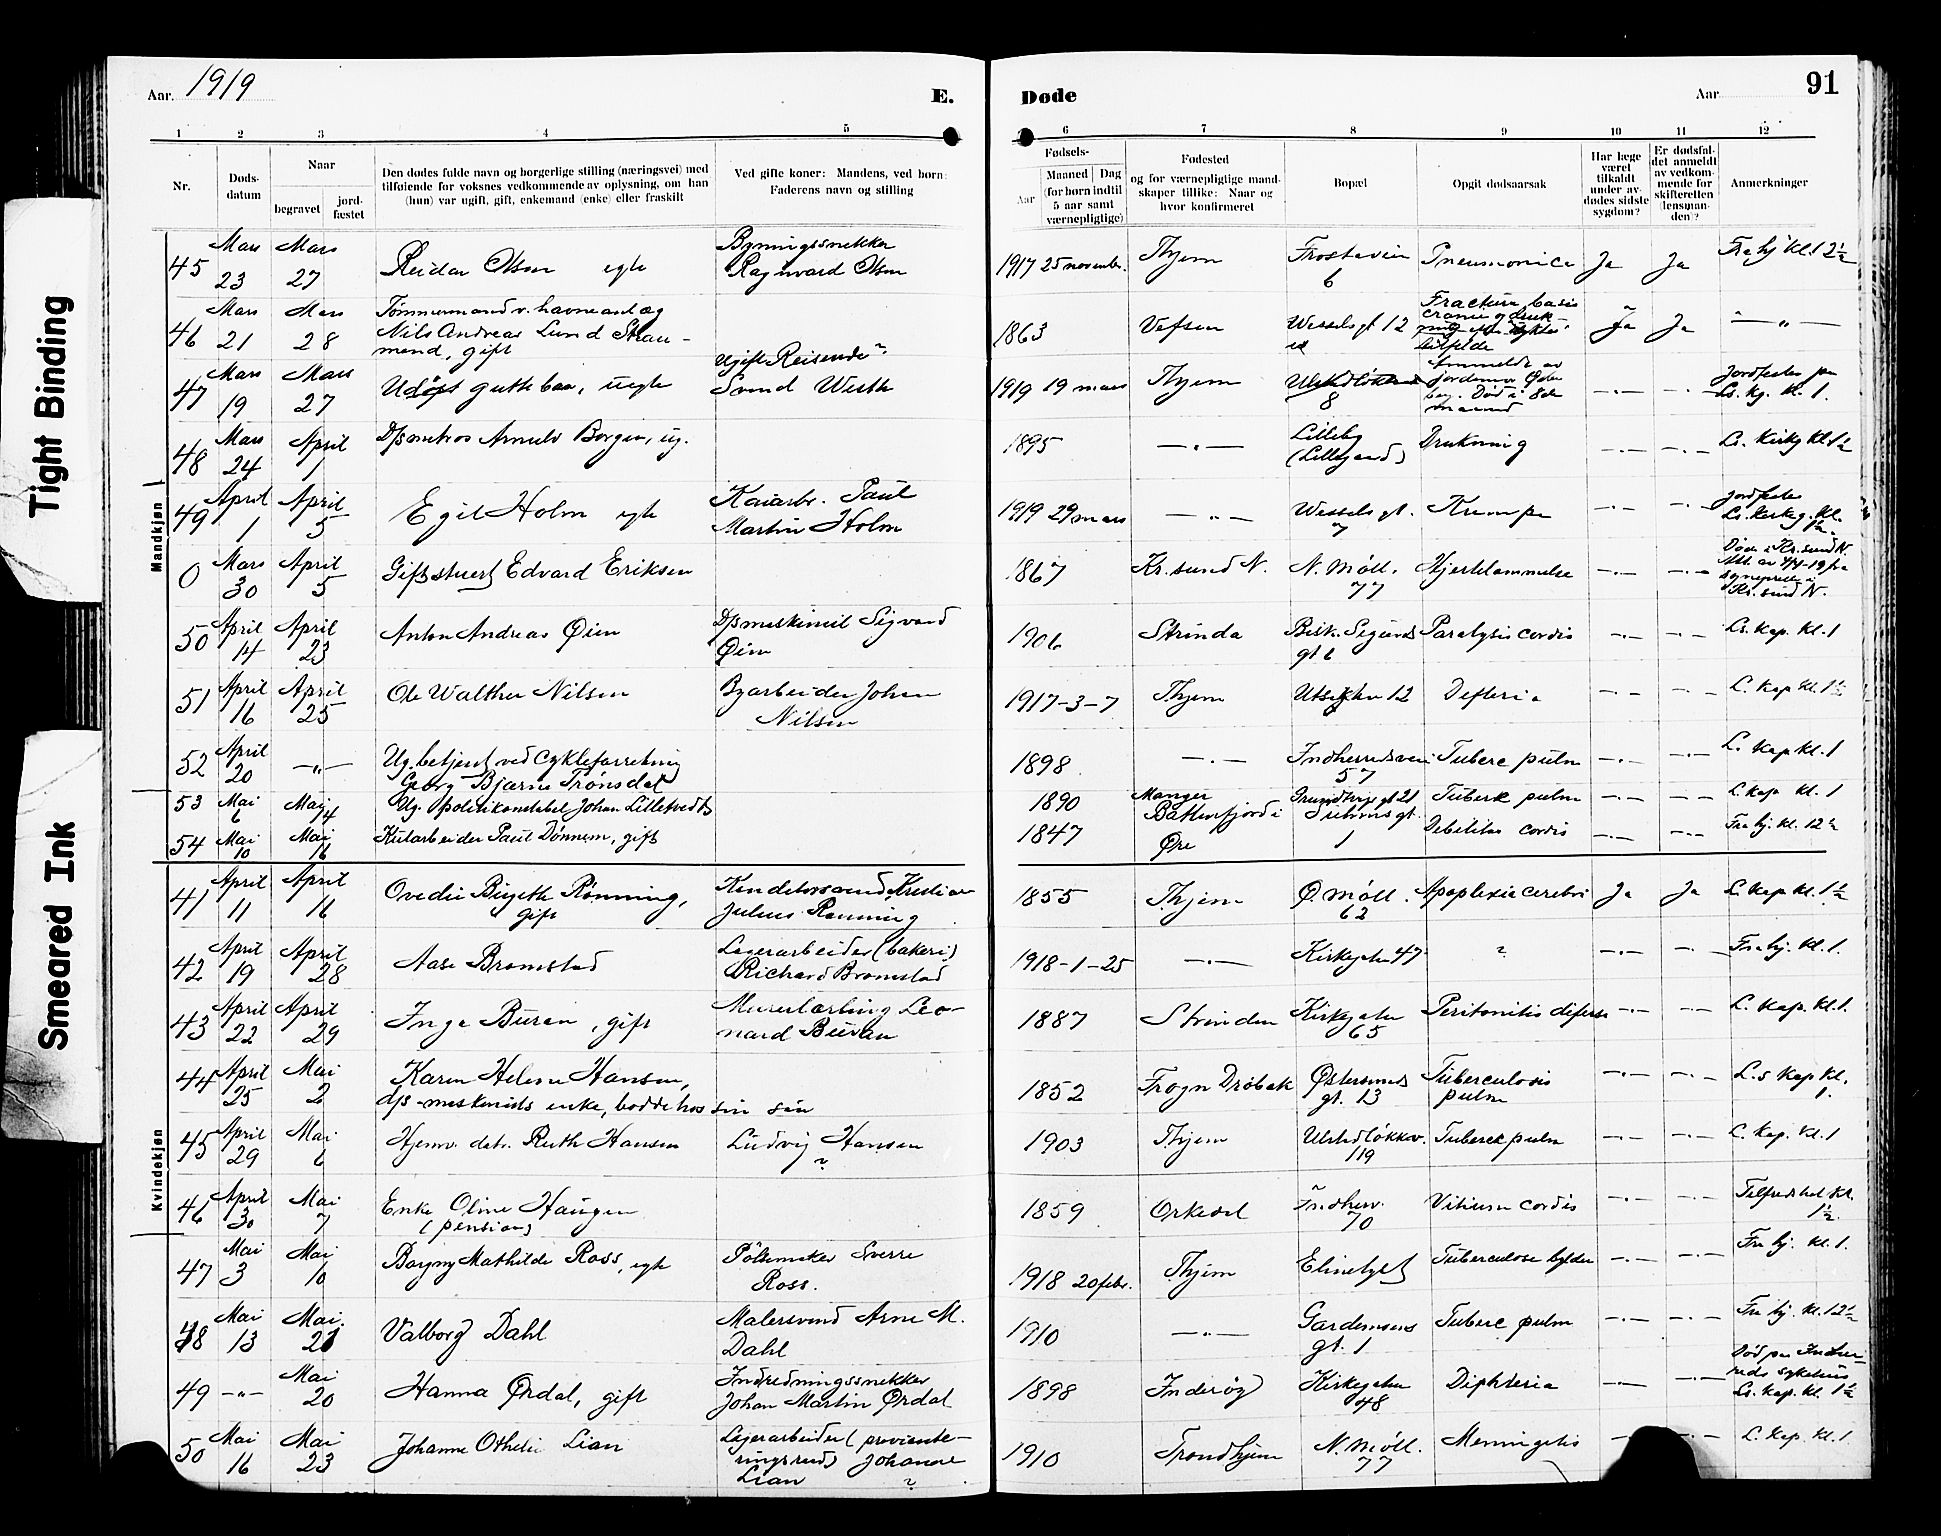 Aar. 1919
E.
Døde
Aar
91
1 2 3 4 5 6 7 8 9 10 11 12
Nr.
Døds-
datum
Naar
begravet
jord-
fæstet
Den dødes fulde navn og borgerlige stilling (næringsvei) med
tilføiende for voksnes vedkommende av oplysning, om han
(hun) var ugift, gift, enkemand (enke) eller fraskilt
Ved gifte koner: Mandens, ved børn:
Faderens navn og stilling
Fødsels-
Aar
Maaned Dag
(for børn indtil
5 aar samt
værnepligtige)
Fødested
og for værnepligtige mand-
skaper tillike: Naar og
hvor konfirmeret
Bopæl
Opgit dødsaarsak
Har læge
været
tilkaldt
under av-
dødes sidste
sygdom?
Er dødsfal-
det anmeldt
av vedkom-
mende for
skifteretten
(lensman-
den)?
Anmerkninger
Tight Binding
Smeared Ink
Mandkjøn
Kvindekjøn
45 Mars 23 Mars 27 Reidar Olsen egte Bygningssnekker
Ragnvard Olsen 1917 25 novembr. Thjem Frostavein 6 Pneumonica Ja Ja Fra hj kl. 12½
46 Mars 21 Mars 28 Tømmermand v. havneanlæg
Nils Andreas Lund Strau-
mand, gift 1863 Vefsen Wesselsgt 12 Fractura basis
cranie og druk-
ning Ja Ja — „ —
47 Mars 19 Mars 27 Udøpt guttebarn, uegte Ugift Reisende?
Sand Westh 1919 19 mars Thjem 8 Anmeldt av
jordemor
Død i 8de
maaned —.— —.— Jordfestes pa
Ls. kg. kl. 1.
48 Mars 24 April 1 D/smatros Arnulv Borgen, ug. 1895 — „ — Lilleby
(Lillegaard) Drukning —.— —.— Ls. Kirkg kl. 1½
49 April 1 April 5 Egil Holm egte Kaiarb. Paul
Martin Holm 1919 29 mars — „ — Wesselsgt.
7 Krampe —.— —.— Jordfestes
Ls. kirkeg. kl.
1½
0 Mars 30 April 5 Gift stuert Edvard Eriksen 1867 Kr.sund N. N. Møll.
77 Hjertelammelse —.— —.— Døde i Kr.sund N.
Att. av 4/4-19 fra
sogneprest i
Kr.sund N.
50 April 14 April 23 Anton Andreas Øien D/smaskinist Sigvard
Øien 1906 Strinda Bisk. Sigurds
gt 6 Paralysis cordis —.— —.— Ls. kap. kl. 1
51 April 16 April 25 Ole Walther Nilsen Byarbeider Johan
Nilsen 1917-3-7 Thjem 12 Difteria —.— —.— L. kap kl. 1½
52 April 20 — „ — Ug. betjent ved cykleforretning
Georg Bjarne Trønsdal 1898 —.— Indherredsvei
57 Tuberc pulm —.— L. kap kl. 1
53 Mai 6 Mai 14 Ug. politikonstabel Johan Lilletvedt 1890 Manger Tuberk pulm —.— —.— L. kap kl. 1
54 Mai 10 Mai 16 Kularbeider Paul Dønnem, gift 1847 Batnfjord i
Øre 1 Debilitas cordis —.— —.— Fra hj. kl. 12½
41 April 11 April 16 Ovedie Birgitte Rønning,
gift Kristian
Julius Rønning 1855 Thjem Ø. Møll.
62 Apoplexia cerebri Ja Ja L. kap kl. 1½
42 April 19 April 28 Aase Bromstad Lagerarbeider (bakeri)
Richard Bromstad 1918-1-25 —.— Kirkegaten 47 ? —.— —.— Fra hj. kl. 1.
43 April 22 April 29 Inga Buran, gift Murerlærling Leo-
nard Buran 1887 Strinden Kirkegaten
65 Peritonitis difusa —.— —.— L. Kap. kl. 1.
44 April 25 Mai 2 Karen Helene Hansen,
d/s-maskinists enke, bodde hos sin søn 1852 Frogn Drøbak Østersunds
gt. 13 Tuberculosis
pulm —.— —.— L.s kap kl.
1.
45 April 29 Mai 6 Hjemv. datr. Ruth Hansen Ludvig Hansen
? 1903 Thjem Ulstadløkkv.
119 Tuberck pulm —.— —.— L. Kap. kl. 1
46 April 30 Mai 7 Enke Oline Haugen
(pension) 1859 Orkedal Indherv.
70 Vitium cordis —.— —.— Tilfredshet kl.
1½
47 Mai 3 Mai 10 Borgny Mathilde Ross, egte Pølsemaker Sverre
Ross. 1918 20 febr. Thjem Tuberculose bylder —.— —.— Fra hj. kl. 1.
48 Mai 13 Mai. 21 Valborg Dahl Malersvend Arne M.
Dahl 1910 — „ — Gardemoens
gt. 1 Tuberc pulm —.— —.— Fra hj. kl. 12½
49 — „ — Mai 20 Hanna Ørdal, gift Indredningssnekker
Johan Martin Ørdal 1898 Inderøy Kirkegaten
48 Diphteria —.— —.— Død pa Indher-
reds sykehus
Ls. kap. kl. 1½
50 Mai 16 Mai 23 Johanne Othelie Lian Lagerarbeider (proviante-
ringsraad) Johannes
Lian ? 1910 Trondhjem N. Møll.
77 Meningitis —.— L. kap. kl. 1